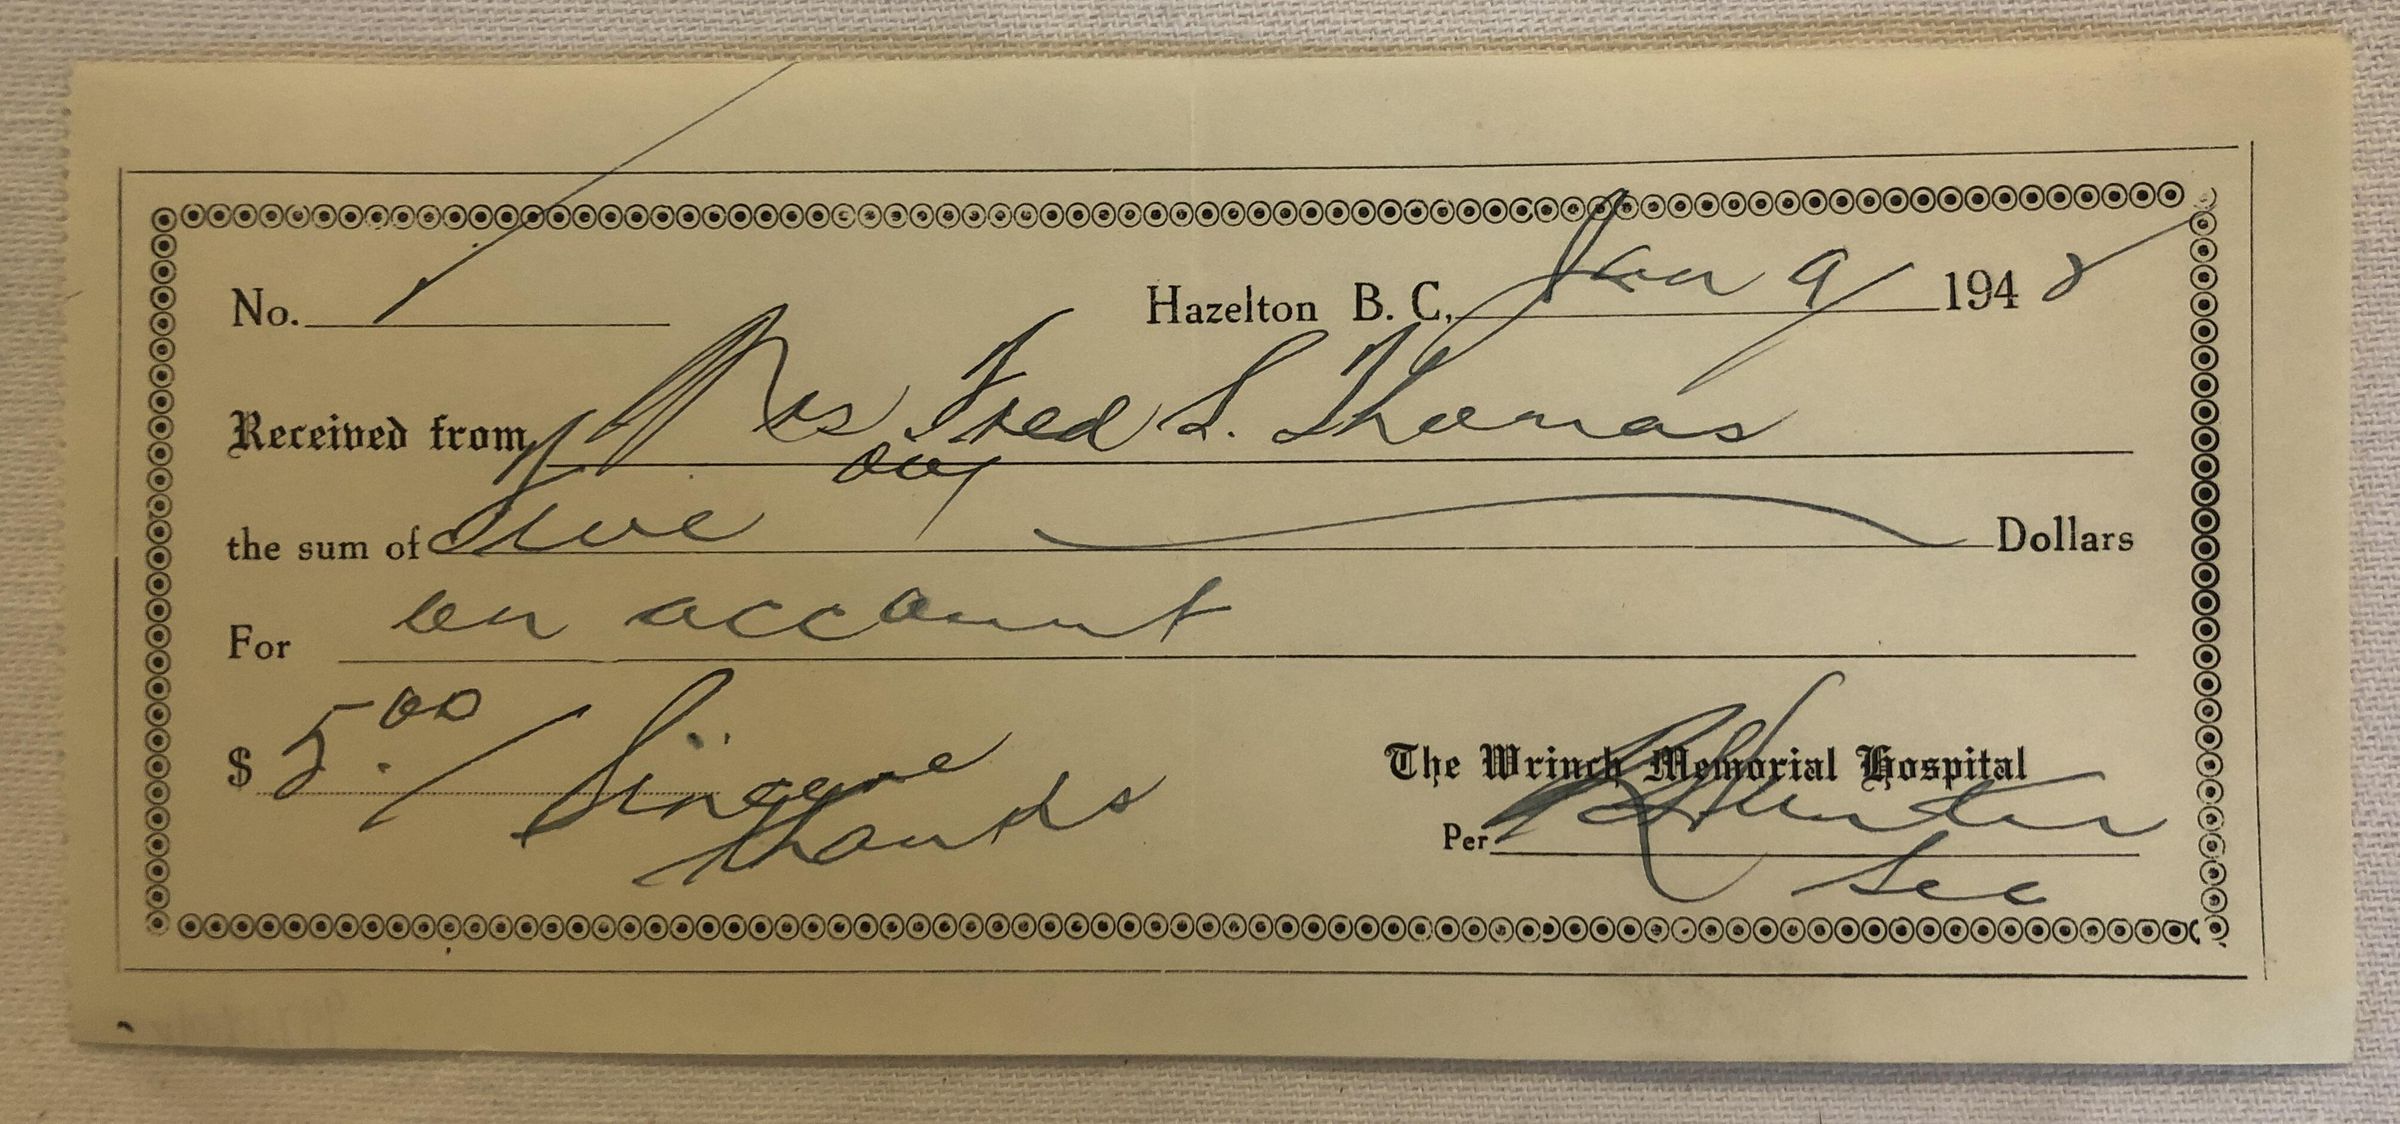 No. 1 Hazelton B. C., Jan 9/ 1948
Received from Mrs Fred S. Thomas
the sum of Five oo/ Dollars
For on account
$ 5.00/ Sincere
thanks
The Wrinch Memorial Hospital
Per Hunter
Sec